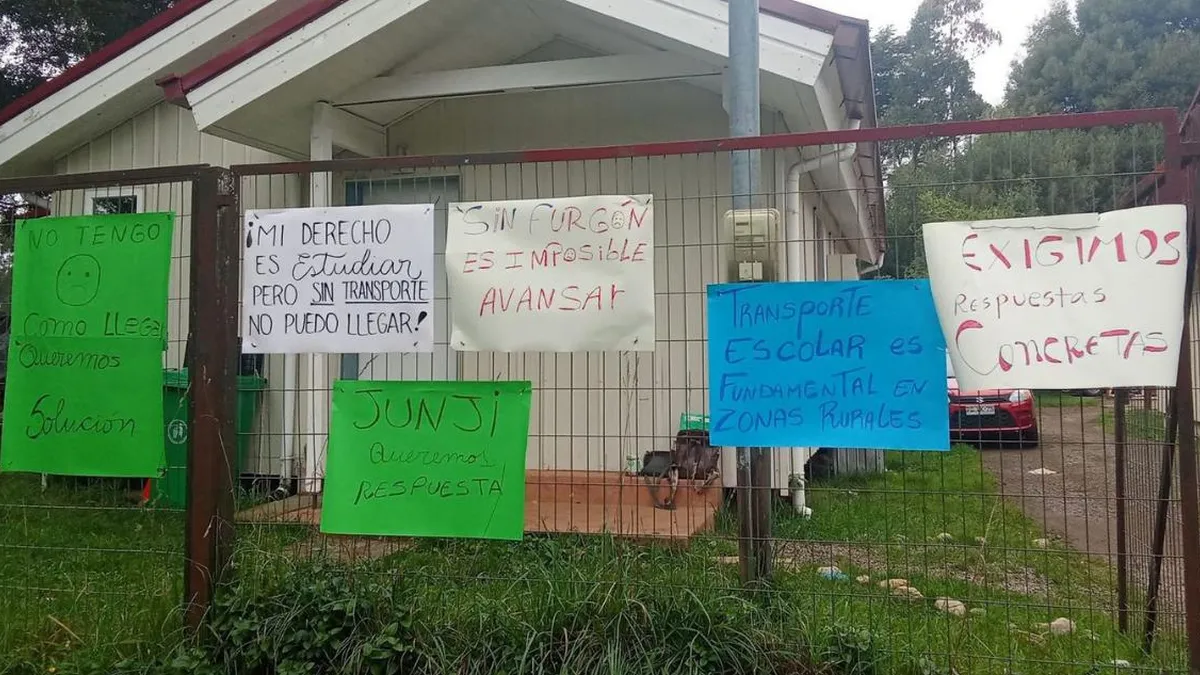 NO TENGO
Como LLEGAR
Queremos
Solución
¡MI DERECHO
ES Estudiar
PERO SIN TRANSPORTE
NO PUEDO LLEGAR!
SIN FURGÓN
ES IMPOSIBLE
AVANSAR
JUNJI
Queremos
RESPUESTA!
TRANSPORTE
ESCOLAR es
FUNDAMENTAL EN
ZONAS RURALES
EXIGIMOS
Respuestas
CONCRETAS